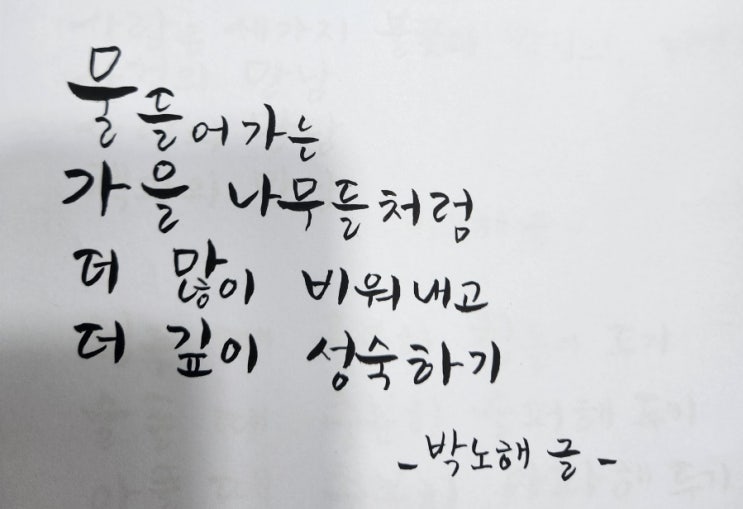 물들어가는
가을 나무들처럼
더 많이 비워내고
더 깊이 성숙하기
- 박노해 글 -